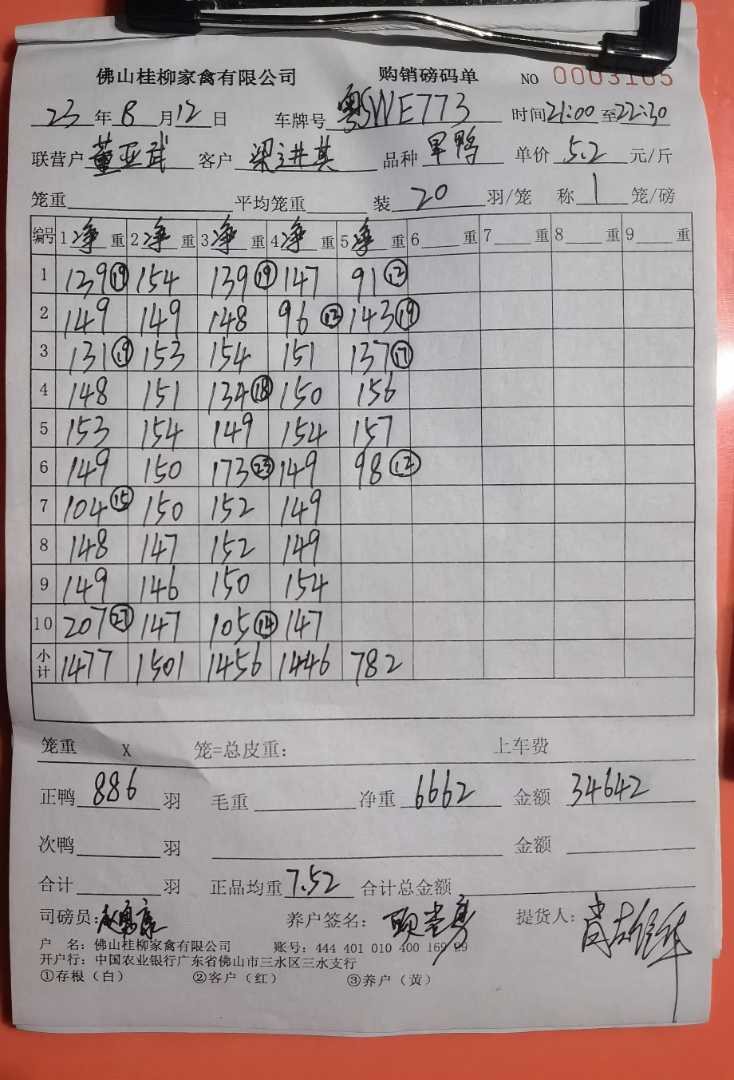 佛山桂柳家禽有限公司 购销磅码单 NO 0003165
23年8月12日 车牌号 粤SWE773 时间21:00至22:30
联营户 董亚武 客户 梁进其 品种 旱鸭 单价 5.2 元/斤
笼重 平均笼重 装 20 羽/笼 称 1 笼/磅
编号 1净重 2净重 3净重 4净重 5净重 6 重 7 重 8 重 9 重
1 139⑲ 154 139⑲ 147 91⑫
2 149 149 148 96⑬ 143⑲
3 131⑲ 153 154 151 137⑰
4 148 151 134⑱ 150 156
5 153 154 149 154 157
6 149 150 173㉓ 149 98⑫
7 104⑮ 150 152 149
8 148 147 152 149
9 149 146 150 154
10 207㉗ 147 105⑭ 147
小计 1477 1501 1456 1446 782
笼重 X 笼=总皮重: 上车费
正鸭 886 羽 毛重 净重 6662 金额 34642
次鸭 羽 金额
合计 羽 正品均重 7.52 合计总金额
司磅员: 养户签名: 提货人:
户 名: 佛山桂柳家禽有限公司 账号: 444 401 010 400 169 89
开户行: 中国农业银行广东省佛山市三水区三水支行
①存根(白) ②客户(红) ③养户(黄)